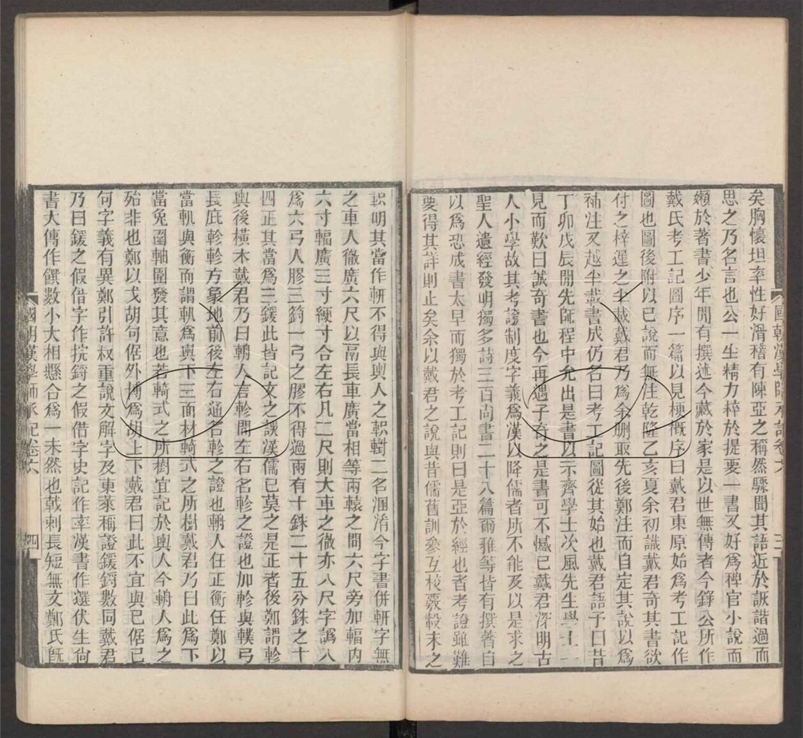 矣胸懷坦率性好滑稽有陳亞之稱然驟聞其語近於詼諧過而
思之乃名言也公一生精力粹於提要一書又好為稗官小說而
嬾於著書少年閒有撰述今藏於家是以世無傳者今錄公所作
戴氏考工記圖序一篇以見梗概序曰戴君東原始為考工記作
圖也圖後附以己說而無注乾隆乙亥夏余初識戴君奇其書欲
付之梓遲之半載戴君乃為余刪取先後鄭注而自定其說以為
補注又越半載書成仍名曰考工記圖從其始也戴君語予曰昔
丁卯戊辰閒先師程中允出是書以示齊學士次風先生學士一
見而歎曰誠奇書也今再遇子奇之是書可不憾已戴君深明古
人小學故其考證制度字義為漢以降儒者所不能及以是求之
聖人遺經發明獨多詩三百尚書二十八篇爾雅等皆有撰著自
以為恐成書太早而獨於考工記則曰是亞於經也者考證雖難
要得其詳則止矣余以戴君之說與昔儒舊訓參互校覈轂末之
國朝漢學師承記卷六
三
軹明其當作軹不得與輿人之軹輢二名溷淆今字書併軹字無
之車人徹廣六尺以鬲長車廣當相等兩轅之閒六尺旁加輻內
六寸輻廣三寸綆寸合左右凡二尺則大車之徹亦八尺字譌八
為六弓人膠三鋝一弓之膠不得過兩有十銖二十五分銖之十
四正其當為三鍰此皆記文之誤漢儒已莫之是正者後鄭謂軫
與後橫木戴君乃曰輈人言軫閒左右名軫之證也加軫與轐弓
長庇軫軫方象地前後左右通名軫之證也輈人任正衡任鄭以
當軓與衡而謂軓為輿下三面材輢式之所樹戴君乃曰此為下
當兔圍軸圍發其意也若輢式之所樹宜記於輿人今輈人為之
殆非也鄭以戈胡句倨外博為胡上下戴君曰此不宜與已倨已
句字義有異鄭引許叔重說文解字及東萊稱證鍰鋝數同戴君
乃曰鍰之假借字作垸鋝之假借字史記作率漢書作選伏生尙
書大傳作饌數小大相懸合為一未然也戟刺長短無文鄭氏旣
國朝漢學師承記卷六
四